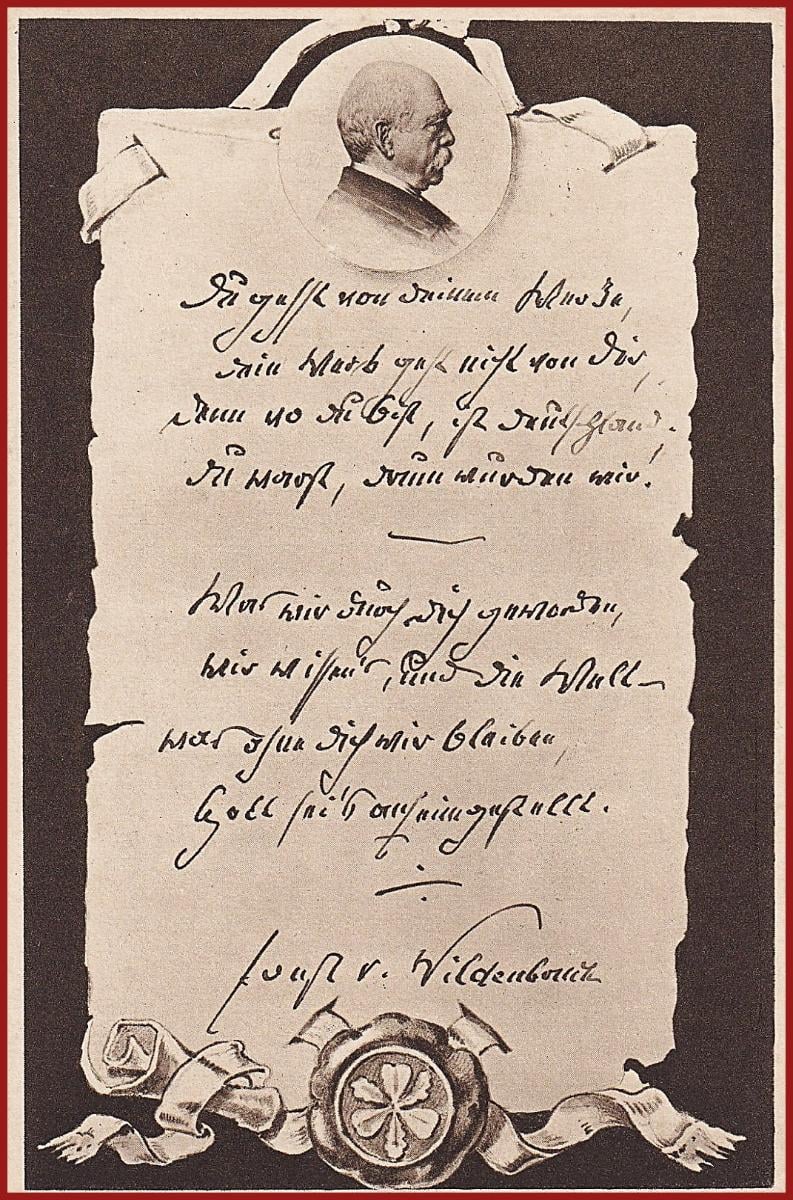 Du gehst von deinem Werke,
dein Werk geht nicht von Dir,
denn wo du bist, ist Deutschland.
du warst, drum wurden wir.
Was wir durch dich geworden,
wir wissen's, und die Welt –
was ohne dich wir bleiben,
Gott sei's anheimgestellt.
Ernst v. Wildenbruch